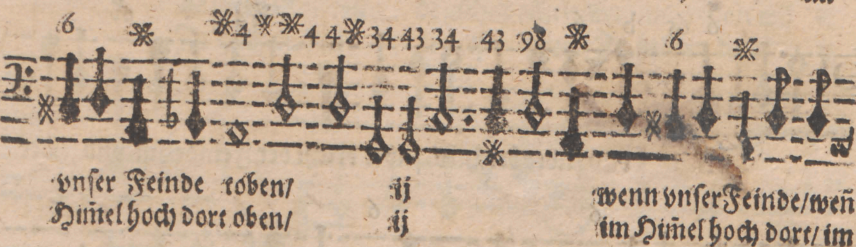 6 * * 4 * * 4 4 * 34 43 34 43 98 * 6 *
vnſer Feinde toben/ ij wenn vnſer Feinde/ weñ
Him̃el hoch dort oben/ ij im Him̃el hoch dort/ im